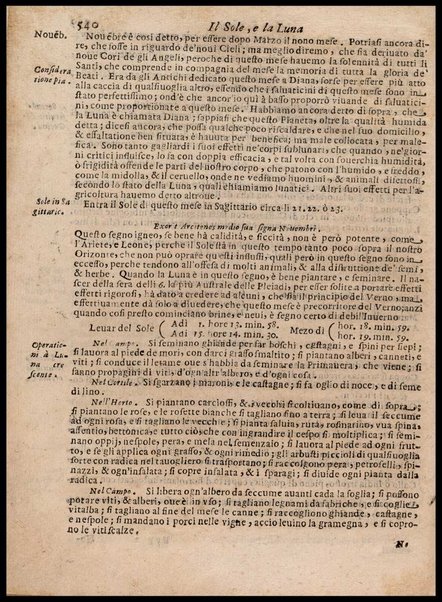 540
Il Sole, e la Luna
Nouéb.
Nouébre è così detto, per essere dopo Marzo il nono mese. Potriasi ancora di-
re, che fosse in riguardo de'noni Cieli; ma meglio diremo, che sia deriuato da'
noue Cori de gli Angeli, peroche di questo mese hauemo la solennità di tutti li
Santi, che comprende in compagnia del mese la memoria di tutta la gloria de'
Considera
tione Pia.
Beati. Era da gli Antichi dedicato questo mese a Diana, forse per essere più atto
alla caccia di qualsiuoglia altro, essendo che i faticosini di questo mese sono in-
stato perfetto; ò vero che ancor io quì à basso proporrò viuande di saluatici-
ni, come proportionate a questo mese. Habbiamo ancora detto di sopra, che
la Luna è chiamata Diana; sappiasi che questo Pianeta, oltre la qualità humida
detta; dicesi ancora, che possa qualche poco riscaldare, e che nel suo domicilio,
& essaltatione ben situata, è hauuta per benefica; ma male collocata, per male-
fica. Sono tanto gagliardi i suoi effetti ne'corpi sublunari, che quando, ne'gior-
ni critici influisce, lo fà con doppia efficacia, e tal volta con souerchia humidità,
ò frigidità offende le parti del nostro corpo, che patono con l'humido, e freddo,
come la midolla, & il ceruello; onde ne vediamo huomini, & animali difettosi,
secondo lo stato della Luna, quali chiamiamo lunatici. Altri suoi effetti per l'a-
gricoltura hauemo detto altroue.
Sole in Sa
gittario.
Entra il Sole di questo mese in Sagittario circa li 21. 22. ò 23.
Exit Arcitenens medio sua signa Nouembri.
Questo segno igneo, se bene hà calidità, e siccità, non è però potente, come
l'Ariete, e Leone, perche il Sole stà in questo tempo tanto poco sopra il nostro
Orizonte, che non può oprare questi influssi, quali però in questo segno sono in
eccesso, perche tendono all'offesa di molti animali, & alla distruttione de'semi,
& herbe. Quando la Luna è in questo segno, è bene piantare, e seminare. Il na-
scer della sera delli 6. la più Australe delle Pleiadi, per esser solite a portare effetti
effetti rigorosi, hà dato a credere ad alcuni, che sia il principio del Verno, ma ef-
fettiuamente dà solo a diuedere, che questo mese è precorritore del Verno, anzi
quando così sta cominciando brine, e neui, è segno certo di debil'Inuerno.
Leuar del Sole ( Adì 1. hor. 13. min. 58. Mezo dì ( hor. 18. min. 59.
Adì 15. hor. 14. min. 30. hor. 19. min. 59.
Operatio-
ni à Lu-
na cre
scente.
Nel Campo. Si seminano ghiande per far boschi, castagni, e spini per siepi;
si lauora al piede de mori, con darci grasso smaltito; si piantano alberi, canneti, e
viti; si conduce il letame oue s'habbia da seminare la Primauera; che viene; si
fanno propagini di viti, d'ogn'altr'albero, e d'ogni cosa.
Nel Cortile. Si sgarzano i maroni, e le castagne; si fà oglio di noce, e di seme
di lino.
Nell'Horto. Si piantano carcioffi, & i vecchi si coltiuano, come di sopra;
si piantano le rose, e le rosette bianche si tagliano fino a terra; si leua il seccume
ad ogni rosa, e si tagliano le vecchie; si pianta saluia, ruta, rosmarino, vua spina,
assentio, bettonica; e tutto ciò che con ingrandire il cespo si moltiplica; si semi-
nano oppij, nespole, pera, e mela nel semenzaio; si lauora al piede ad ogni frut-
to, e se gli applica ogni grasso, & ogni rimedio; gli arbusti piccioli di qualsiuoglia
sorte con radica nel tauogliero, si trasportano; si raccolgono pera, petroselli, spi-
nazzi, & ogn'insalata; si copre insalata, & i sparagi; si diuide ogni pianta dalla
radica.
Nel Campo. Si libera ogn'albero da seccume auanti cada la foglia; si possono
potare viti, & alberi, oue è in vso; si tagliano legnami da fabriche, e si coglie
vitalba; si tagliano al fine del mese le canne; si raccogliono ghiande, castagne,
e nespole; si mandano i porci nelle vigne, accio leuino la gramegna, e si copro-
no le viti scalze.
Ne